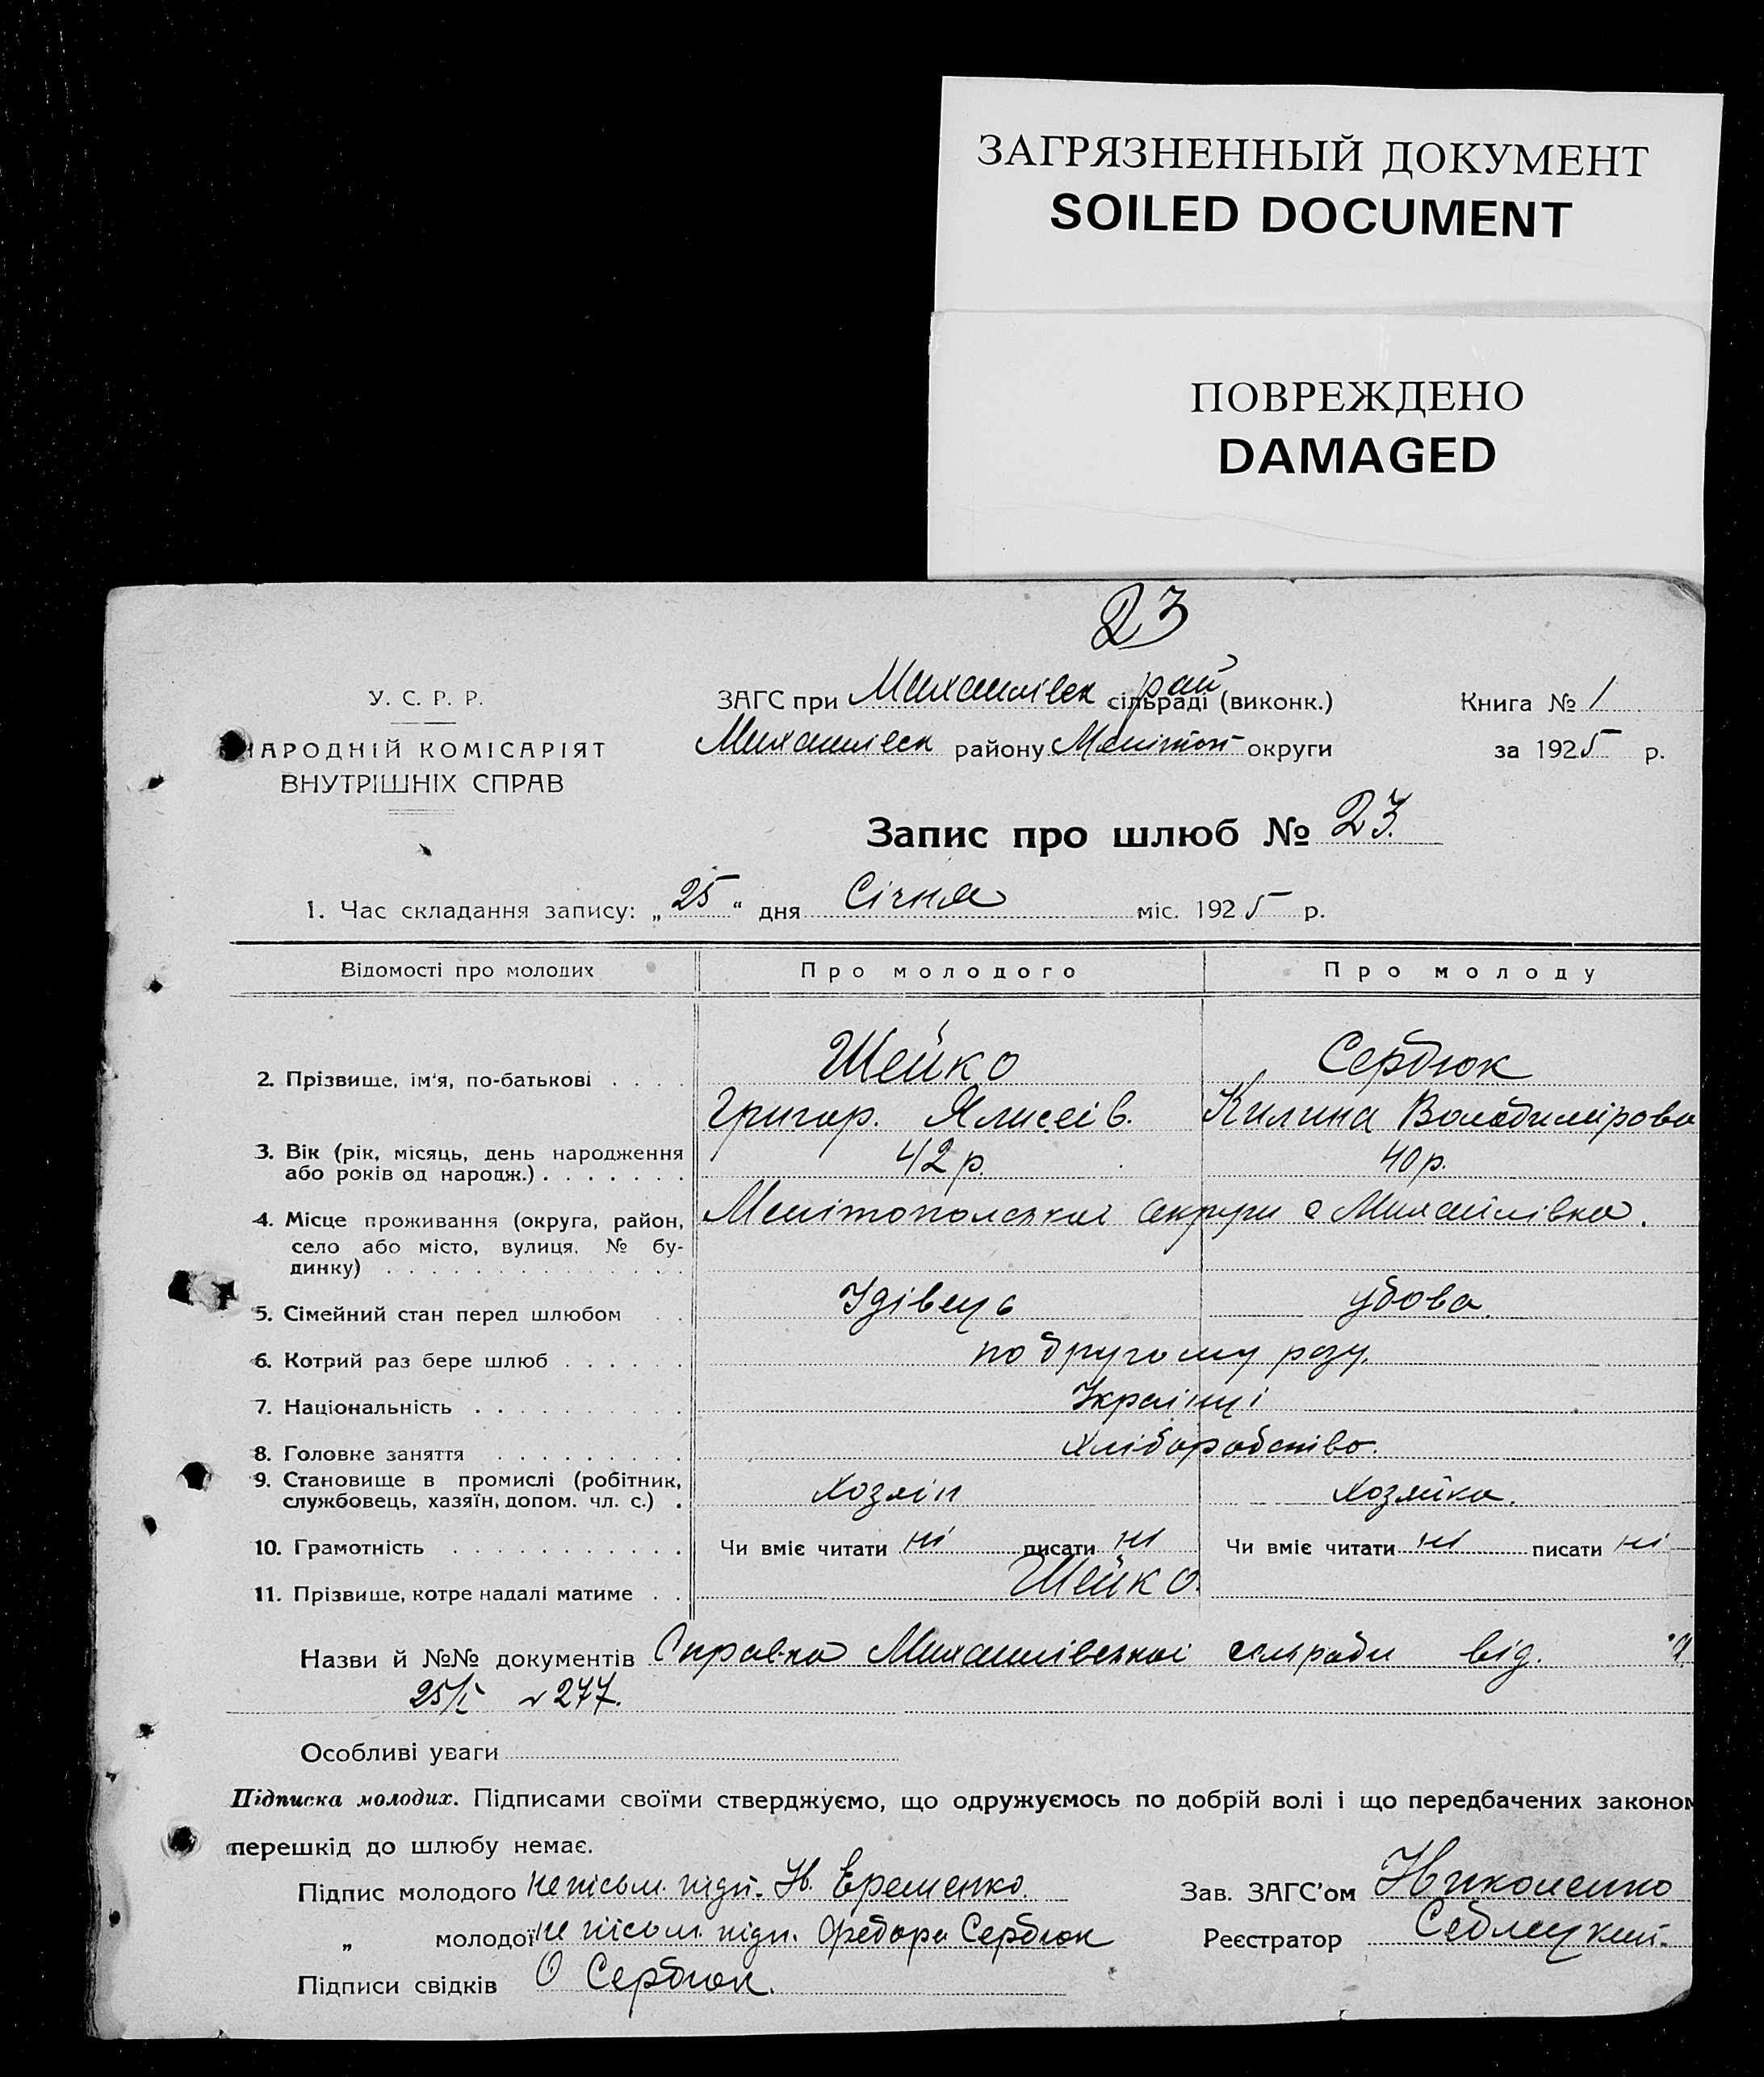 ЗАГРЯЗНЕННЫЙ ДОКУМЕНТ
SOILED DOCUMENT
ПОВРЕЖДЕНО
DAMAGED
23
У. С. Р. Р.
НАРОДНІЙ КОМІСАРІЯТ
ВНУТРІШНІХ СПРАВ
ЗАГС при Михайлівск рай сільраді (виконк.)
Михайлівск району Меліто́п округи
Книга № 1
за 1925 р.
Запис про шлюб № 23.
1. Час складання запису: „25“ дня Січня міс. 1925 р.
Відомості про молодих Про молодого Про молоду
2. Прізвище, ім'я, по-батькові . . . . Шейко Сердюк
Григор. Ялисеів. Килина Володимірова
3. Вік (рік, місяць, день народження
або років од народж.) . . . . . . . 42 р. 40 р.
4. Місце проживання (округа, район,
село або місто, вулиця, № бу-
динку) . . . . . . . . . . . . . .
Мелітопольскоі округи с Михайлівка.
5. Сімейний стан перед шлюбом . . Удівець удова.
6. Котрий раз бере шлюб . . . . . . по другому разу.
7. Національність . . . . . . . . . . Украінці
8. Головне заняття . . . . . . . . . Хліборобство.
9. Становище в промислі (робітник,
службовець, хазяїн, допом. чл. с.) . Хозяін Хозяйка.
10. Грамотність . . . . . . . . . . . Чи вміє читати ні писати ні Чи вміє читати ні писати ні
11. Прізвище, котре надалі матиме . . Шейко.
Назви й №№ документів Справка Михайлівськоі сільради від.
25/I № 277.
Особливі уваги
Підписка молодих. Підписами своїми стверджуємо, що одружуємось по добрій волі і що передбачених законом
перешкід до шлюбу немає.
Підпис молодого не письм. підп. Н. Еременко Зав. ЗАГС'ом Николенко
„ молодої не письм. підп. Федора Сердюк Реєстратор Седлецкий.
Підписи свідків О Сердюк.